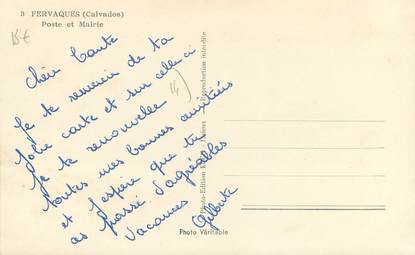 3 FERVAQUES (Calvados)
Poste et Mairie
15€
Chère Tante
Je te remercie de ta
Jolie carte et sur celle-ci
Je te renouvelle
toutes mes bonnes amitiés
et J'espère que tu
as passé d'agréables
vacances
Gilberte
Photo-Edition
Reproduction interdite
Photo Véritable